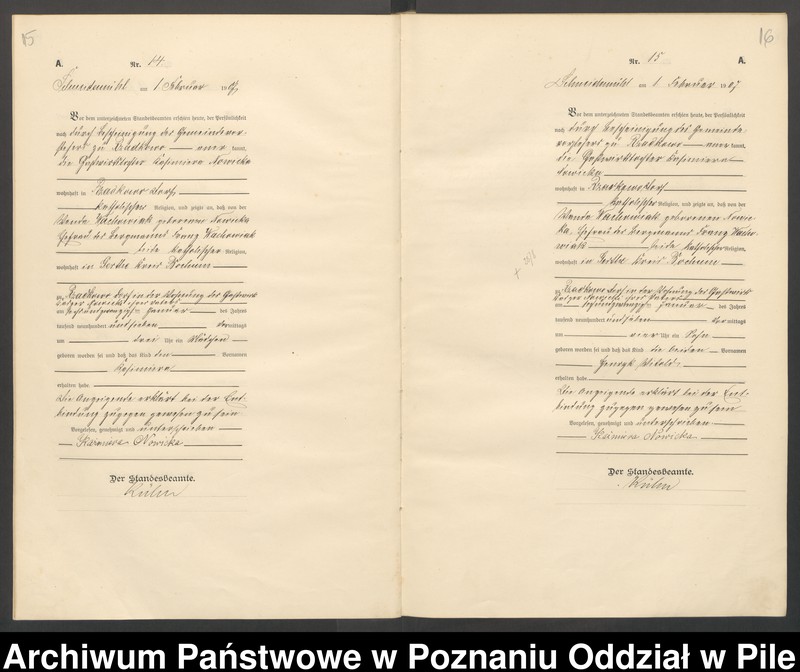 15
A.
Nr. 14
Schneidemühl am 1 Februar 1907
Vor dem unterzeichneten Standesbeamten erschien heute, der Persönlichkeit
nach durch Bescheinigung des Gemeindevor-
stehers zu Radkowo anerkannt,
die Gastwirthstochter Kasimiera Nowicka
wohnhaft in Dorf
katholischer Religion, und zeigte an, daß von der
Wanda Wachowiak geborenen Nowicka
Ehefrau des Bergmanns Franz Wachowiak
beide katholischer Religion,
wohnhaft in Gerthe Kreis Bochum
zu Dorf in der Wohnung des Gastwirts
Nowicki ihres Vaters
am Januar des Jahres
tausend neunhundert und sieben Vormittags
um drei Uhr ein Mädchen
geboren worden sei und daß das Kind den Vornamen
Kasimiera
erhalten habe.
Die Anzeigende erklärt bei der Ent-
bindung zugegen gewesen zu sein
Vorgelesen, genehmigt und unterschrieben
Nowicka
Der Standesbeamte.
16
Nr. 15
A.
Schneidemühl am 1. Februar 1907
Vor dem unterzeichneten Standesbeamten erschien heute, der Persönlichkeit
nach durch Bescheinigung des Gemeinde-
vorstehers zu Radkowo anerkannt,
die Gastwirthstochter Kasimiera
Nowicka
wohnhaft in Dorf
katholischer Religion, und zeigte an, daß von der
Wanda Wachowiak geborenen Nowic-
ka, Ehefrau des Bergmanns Franz Wacho-
wiak beide katholischer Religion,
wohnhaft in Gerthe Kreis Bochum
zu Dorf in der Wohnung des Gastwirts
Nowicki ihres Vaters
am Januar des Jahres
tausend neunhundert und sieben Vormittags
um vier Uhr ein Sohn
geboren worden sei und daß das Kind die beiden Vornamen
Henryk Witold
erhalten habe.
Die Anzeigende erklärt bei der Ent-
bindung zugegen gewesen zu sein
Vorgelesen, genehmigt und unterschrieben
Nowicka
Der Standesbeamte.
Archiwum Państwowe w Poznaniu Oddział w Pile